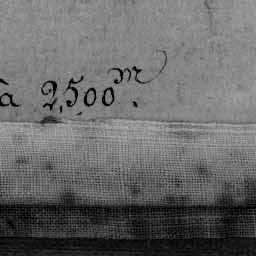 à 2,500 m.